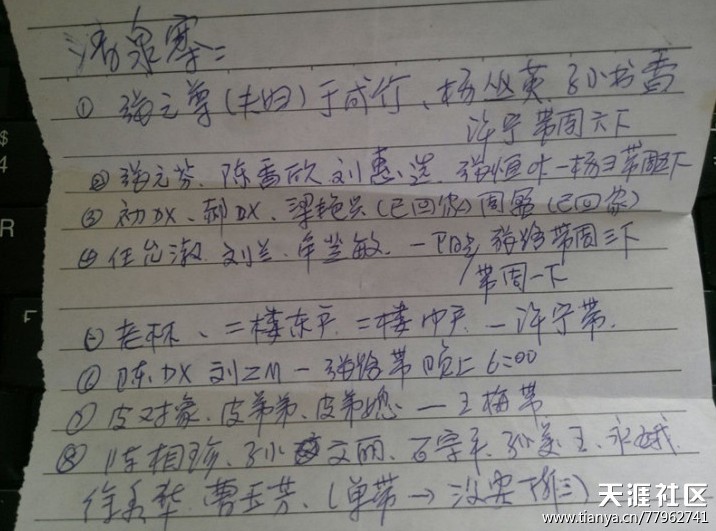 清泉寨:
① 张之尊(夫妇)于成竹、杨丛英 孙小书香
许宁带周六下
② 张元芬、陈香欣 刘惠选 张恒 一杨 带周五下
③ 初DX、郝DX、梁艳 (已回家) 周 (已回家)
④ 任允淑、刘兰、牟芝敏、一 张 带周三下
带周一下
⑤ 老林、二楼东户 二楼中户 — 许宁带.
⑥ 陈DX 刘ZM — 张 带晚上6:00
⑦ 皮对象、皮弟弟、皮弟媳 — 王梅带
⑧ 陈相珍、孙 文丽、石字 孙美玉、永娥
徐 华、曹玉芳、(单带→没安排)
天涯社区
www.tianya.cn/77962741